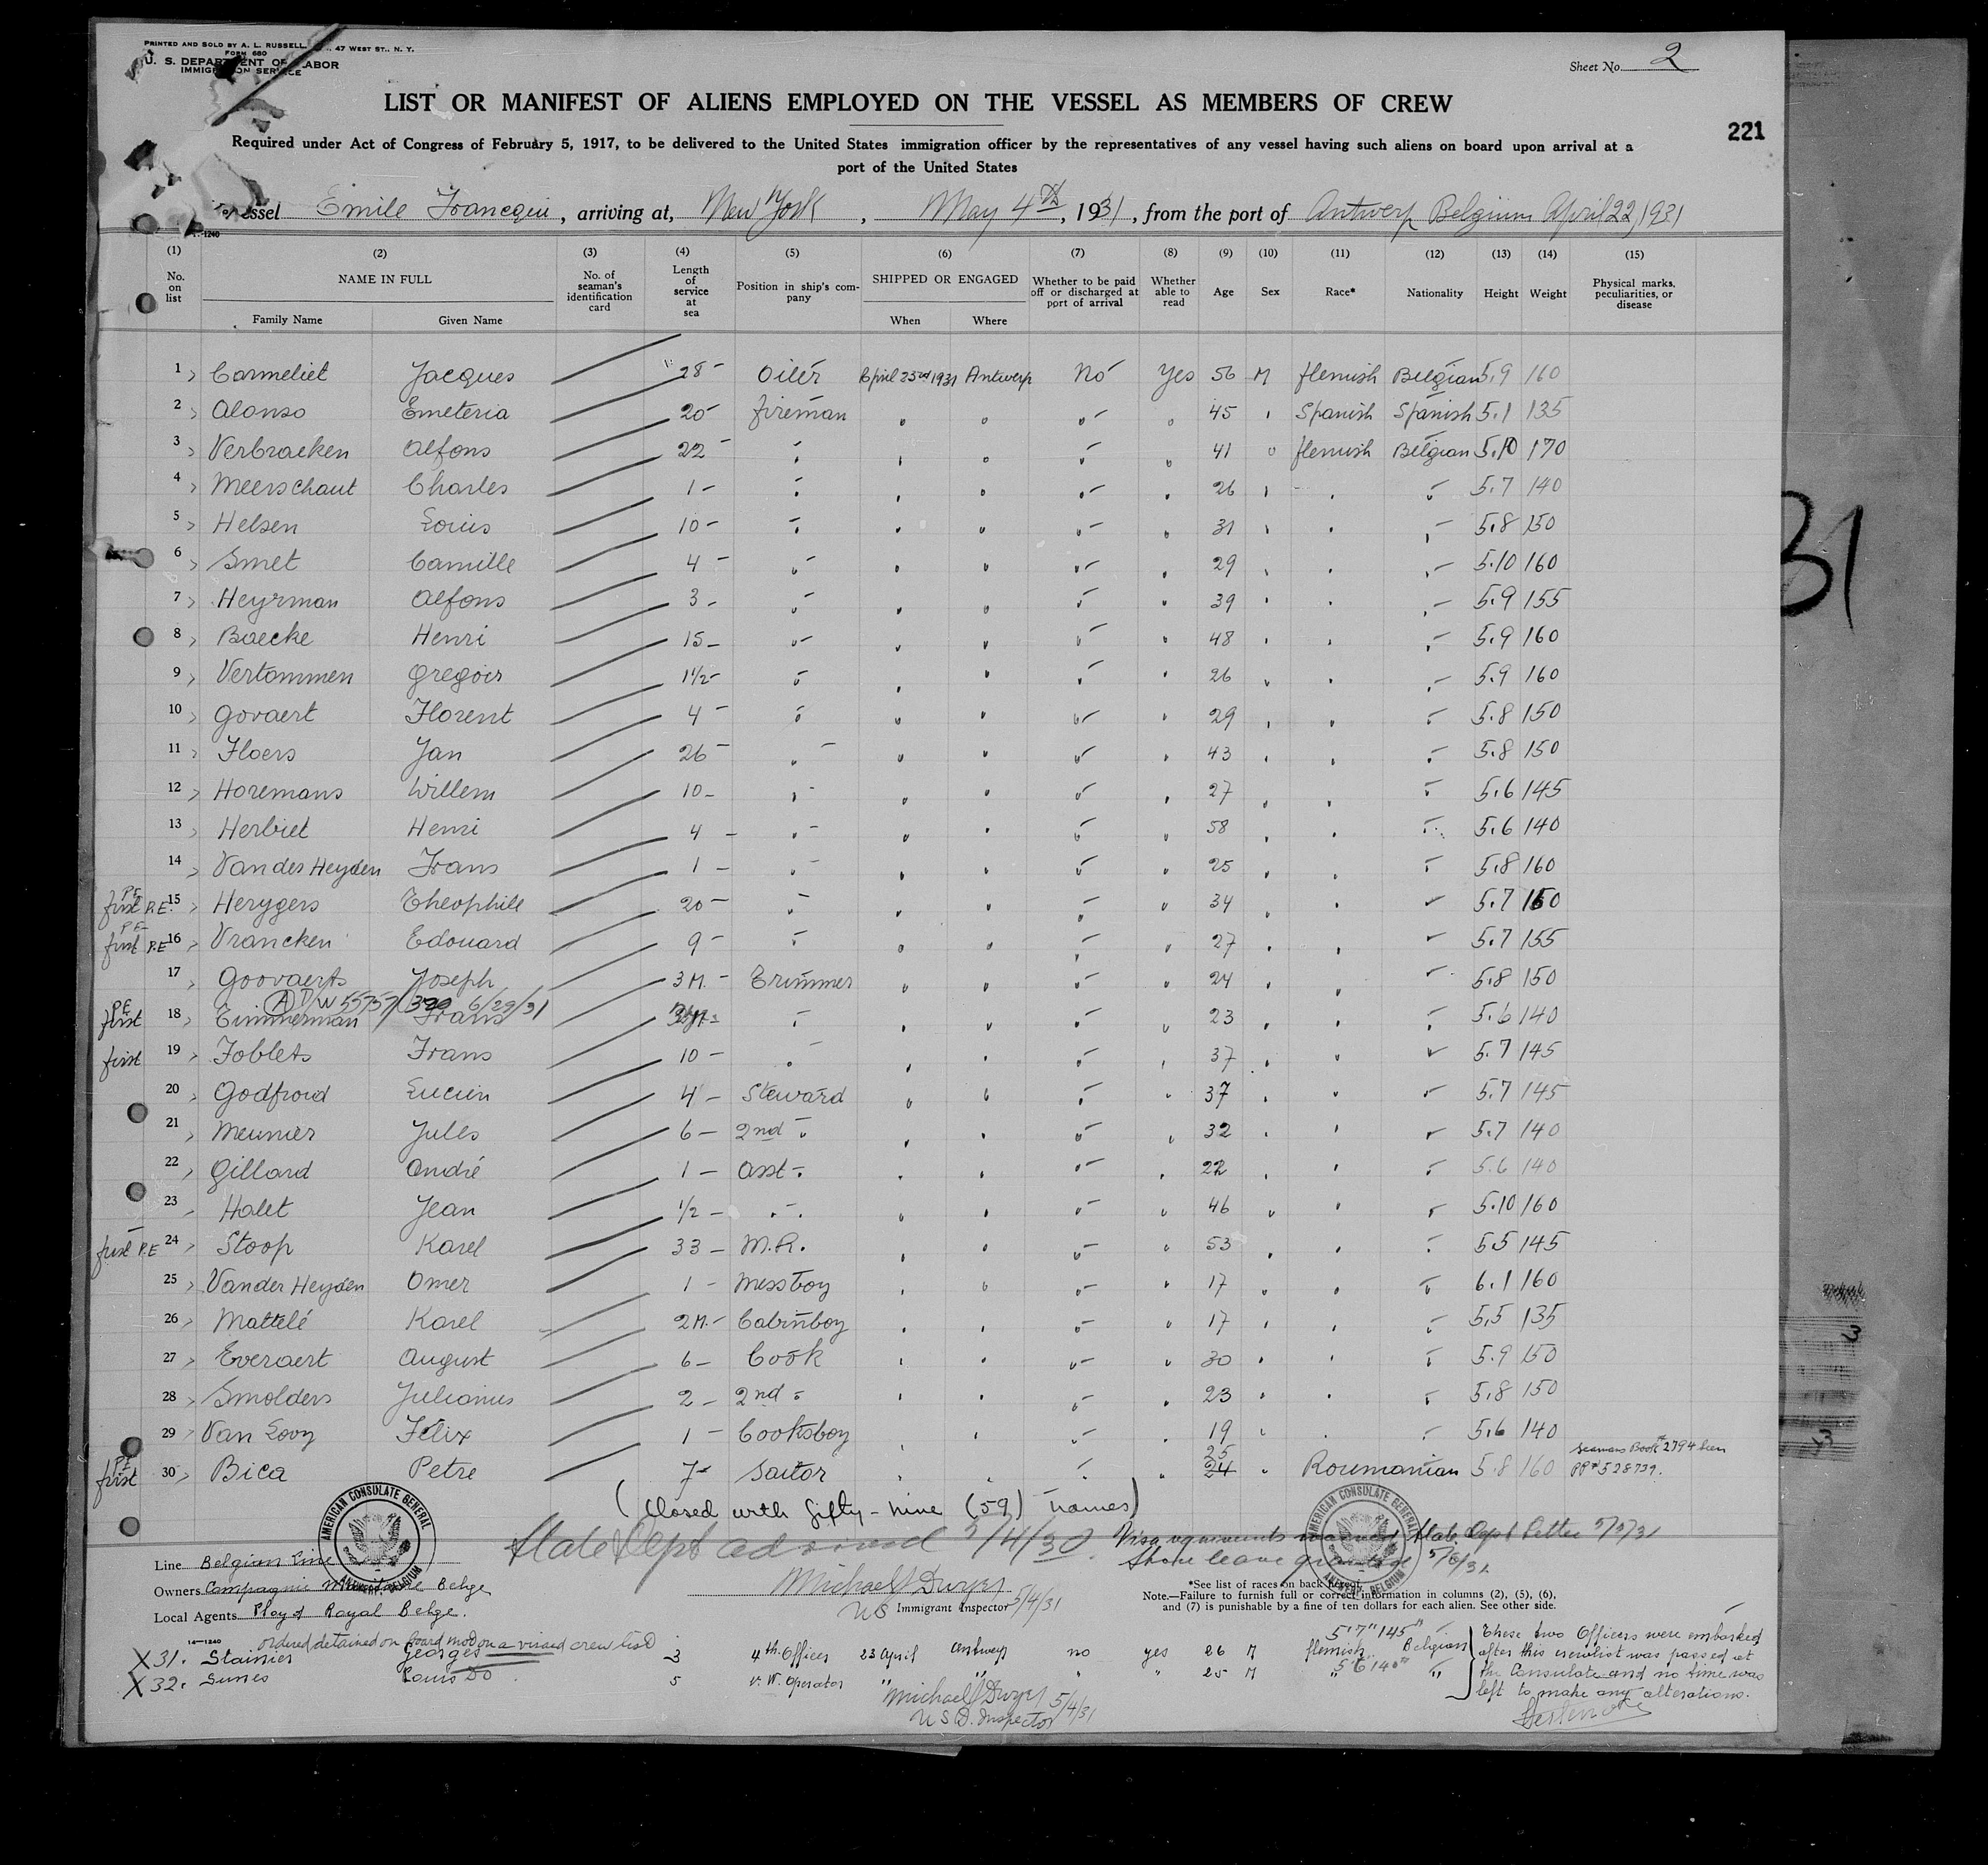 PRINTED AND SOLD BY A. L. RUSSELL, 47 WEST ST., N. Y.
FORM 680
U. S. DEPARTMENT OF LABOR
IMMIGRATION SERVICE
Sheet No. 2
LIST OR MANIFEST OF ALIENS EMPLOYED ON THE VESSEL AS MEMBERS OF CREW
221
Required under Act of Congress of February 5, 1917, to be delivered to the United States immigration officer by the representatives of any vessel having such aliens on board upon arrival at a
port of the United States
Vessel Emile Francqui, arriving at, New York, May 4th, 1931, from the port of Antwerp Belgium April 22, 1931
(1) (2) (3) (4) (5) (6) (7) (8) (9) (10) (11) (12) (13) (14) (15)
No. on list NAME IN FULL Family Name Given Name No. of seaman's identification card Length of service at sea Position in ship's company SHIPPED OR ENGAGED When Where Whether to be paid off or discharged at port of arrival Whether able to read Age Sex Race* Nationality Height Weight Physical marks, peculiarities, or disease
1 Carmeliet Jacques 28 - Oiler April 23rd 1931 Antwerp No Yes 56 M flemish Belgian 5.9 160
2 Alonso Emeteria 20 - fireman " " " " 45 " Spanish Spanish 5.1 135
3 Verbraeken Alfons 22 - " " " " " 41 " flemish Belgian 5.10 170
4 Meerschaut Charles 1 - " " " " " 26 " " " 5.7 140
5 Helsen Louis 10 - " " " " " 31 " " " 5.8 150
6 Smet Camille 4 - " " " " " 29 " " " 5.10 160
7 Heyrman Alfons 3 - " " " " " 39 " " " 5.9 155
8 Baecke Henri 15 - " " " " " 48 " " " 5.9 160
9 Vertommen Gregoir 1½ - " " " " " 26 " " " 5.9 160
10 Govaert Florent 4 - " " " " " 29 " " " 5.8 150
11 Floers Jan 26 - " " " " " 43 " " " 5.8 150
12 Horemans Willem 10 - " " " " " 27 " " " 5.6 145
13 Herbiet Henri 4 - " " " " " 58 " " " 5.6 140
14 Van der Heyden Frans 1 - " " " " " 25 " " " 5.8 160
P.E. first P.E. 15 Herygers Theophile 20 - " " " " " 34 " " " 5.7 160
P.E. first P.E 16 Vrancken Edouard 9 - " " " " " 27 " " " 5.7 155
17 Goovaerts Joseph 3 M. - Trimmer " " " " 24 " " " 5.8 150
6/29/31
P.E. first 18 Timmerman Frans " " " " " 23 " " " 5.6 140
first 19 Foblets Frans 10 - " " " " " 37 " " " 5.7 145
20 Godfroid Lucien 4 - Steward " " " " 37 " " " 5.7 145
21 Meunier Jules 6 - 2nd " " " " " 32 " " " 5.7 140
22 Gillard André 1 - Asst - " " " " " 22 " " " 5.6 140
23 Halet Jean 1/2 - " " " " " " 46 " " " 5.10 160
first P.E 24 Stoop Karel 33 - M.R. " " " " 53 " " " 5.5 145
25 Vander Heyden Omer 1 - Messboy " " " " 17 " " " 6.1 160
26 Mattelé Karel 2 M. - Cabinboy " " " " 17 " " " 5.5 135
27 Everaert August 6 - Cook " " " " 30 " " " 5.9 150
28 Smolders Julianus 2 - 2nd " " " " " 23 " " " 5.8 150
29 Van Looy Felix 1 - Cooksboy " " " " 19 " " " 5.6 140
P.E. first 30 Bica Petre 7 - Sailor " " " " 25 24 " Roumanian 5.8 160 Seamans Book # 2794 PP # 528739.
(Closed with fifty-nine (59) names)
State Dept advised 5/4/30 Visa State Dept Letter 5/5/31
Shore leave granted 5/6/31
AMERICAN CONSULATE GENERAL ANTWERP, BELGIUM
AMERICAN CONSULATE GENERAL ANTWERP, BELGIUM
Line Belgian Line
Owners Compagnie Maritime Belge
Local Agents Lloyd Royal Belge.
Michael J Dwyer
US Immigrant Inspector 5/4/31
*See list of races on back hereof.
Note.—Failure to furnish full or correct information in columns (2), (5), (6),
and (7) is punishable by a fine of ten dollars for each alien. See other side.
14—1240
ordered detained on board not on a visaed crew list
X 31. Stainier Georges 3 4th Officer 23 April Antwerp no yes 26 M flemish Belgian 5'7" 145#
X 32. Sunes Louis Do 5 W. Operator " " " " 25 M " " 5'6 140#
Michael J Dwyer 5/4/31
U S D. Inspector
These two Officers were embarked
after this crewlist was passed at
the Consulate and no time was
left to make any alterations.
31